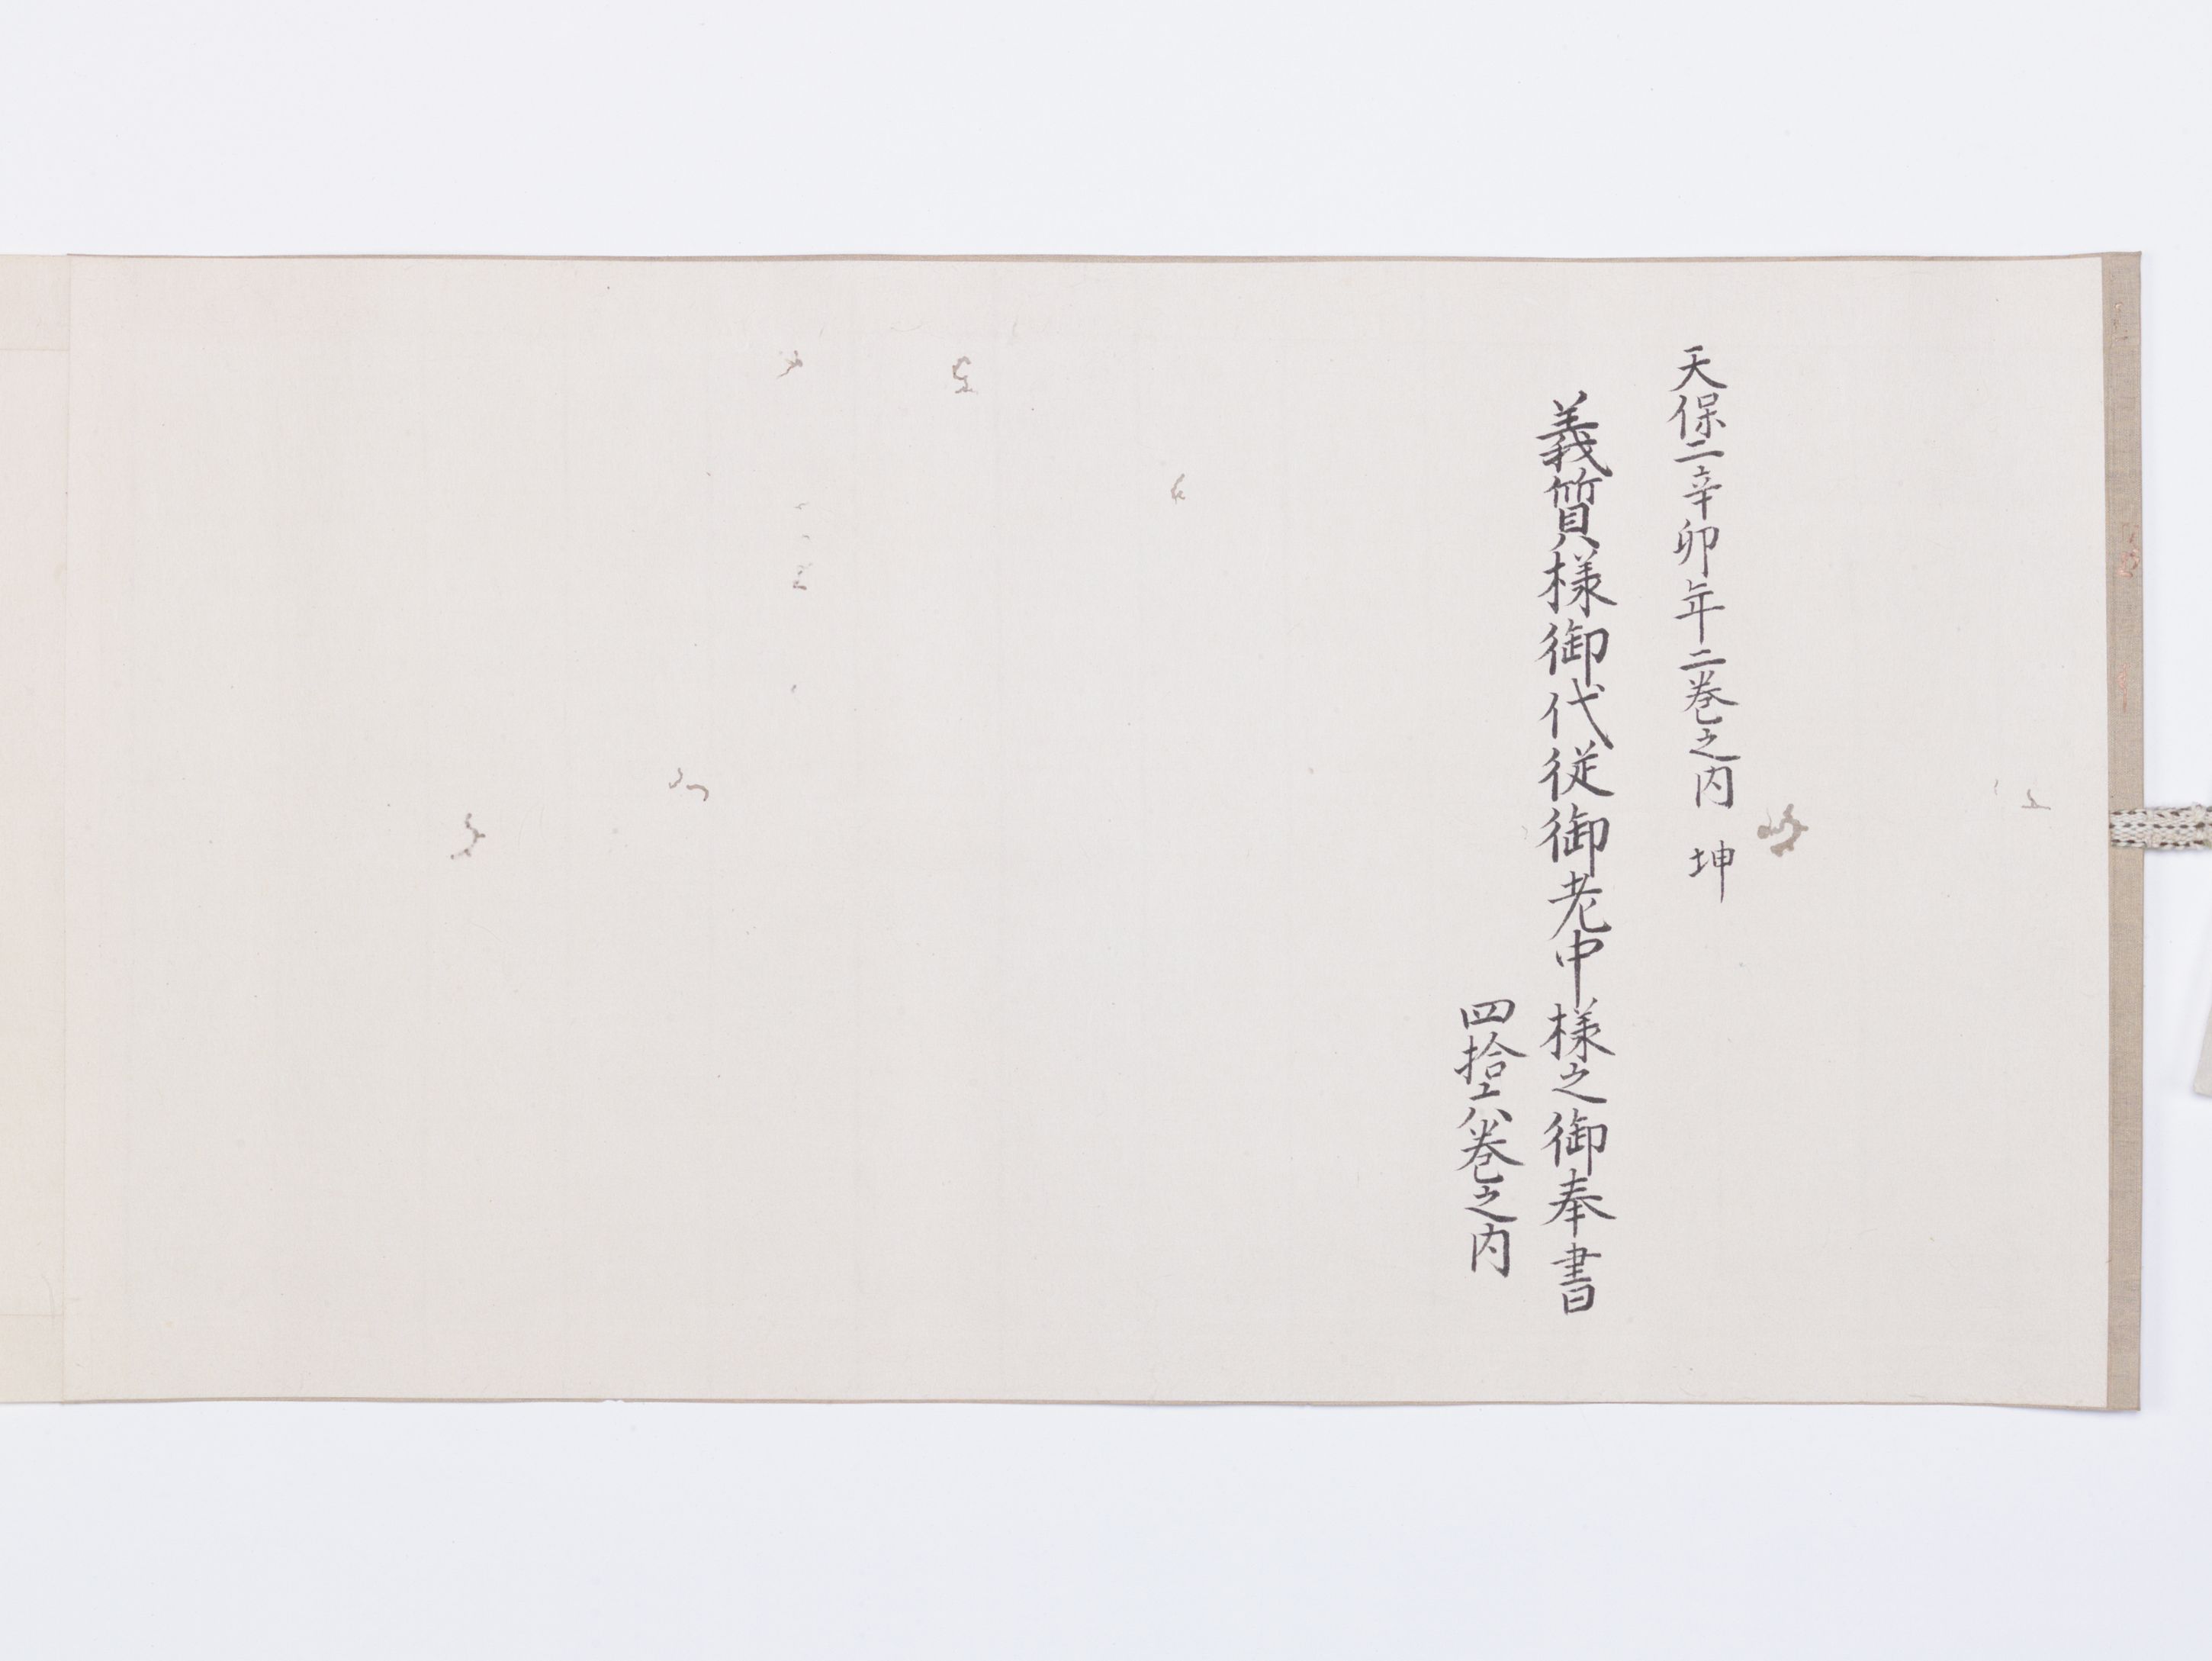 天保二辛卯年二巻之内 坤
義質様御代従御老中様之御奉書
四拾六巻之内